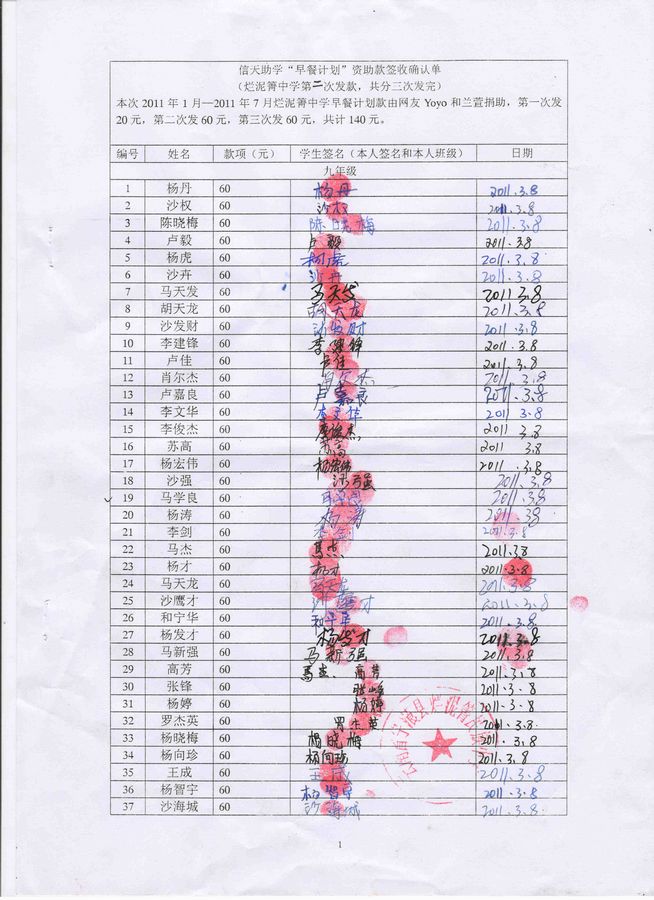 信天助学“早餐计划”资助款签收确认单
（烂泥箐中学第二次发款，共分三次发完）
本次 2011 年 1 月—2011 年 7 月烂泥箐中学早餐计划款由网友 Yoyo 和兰萱捐助，第一次发
20 元，第二次发 60 元，第三次发 60 元，共计 140 元。
编号 姓名 款项（元） 学生签名（本人签名和本人班级） 日期
九年级
1 杨丹 60 杨丹 2011.3.8
2 沙权 60 沙权 2011.3.8
3 陈晓梅 60 陈晓梅 2011.3.8
4 卢毅 60 卢毅 2011.3.8
5 杨虎 60 杨虎 2011.3.8
6 沙卉 60 沙丹 2011.3.8
7 马天发 60 马天发 2011 3.8
8 胡天龙 60 胡天龙 2011.3.8
9 沙发财 60 沙发财 2011.3.8
10 李建锋 60 李建锋 2011.3.8
11 卢佳 60 卢佳 2011.3.8
12 肖尔杰 60 肖尔杰 2011.3.8
13 卢嘉良 60 卢嘉良 2011.3.8
14 李文华 60 李文华 2011 3.8
15 李俊杰 60 2011 3.8
16 苏高 60 苏高 2011 3.8
17 杨宏伟 60 杨宏伟 2011.3.8
18 沙强 60 2011.3.8
19 马学良 60 马学良 2011.3.8
20 杨涛 60 杨涛 2011 .38
21 李剑 60 李剑 2011.3.8
22 马杰 60 马杰. 2011.3.8
23 杨才 60 杨才 2011.3.8
24 马天龙 60 马天龙 2011.3.8
25 沙鹰才 60 沙鹰才 2011.3.8
26 和宁华 60 2011.3.8
27 杨发才 60 杨发才 2011.3.8
28 马新强 60 马新强 2011.3.8
29 高芳 60 马杰、高芳 2011.3.8
30 张锋 60 2011.3.8
31 杨婷 60 杨婷 2011.3.8
32 罗杰英 60 罗杰英 2011.3.8
33 杨晓梅 60 杨晓梅 2011.3.8
34 杨向珍 60 杨向珍 2011.3.8
35 王成 60 王成 2011.3.8
36 杨智宇 60 杨智宇 2011.3.8
37 沙海城 60 沙海城 2011.3.8
1